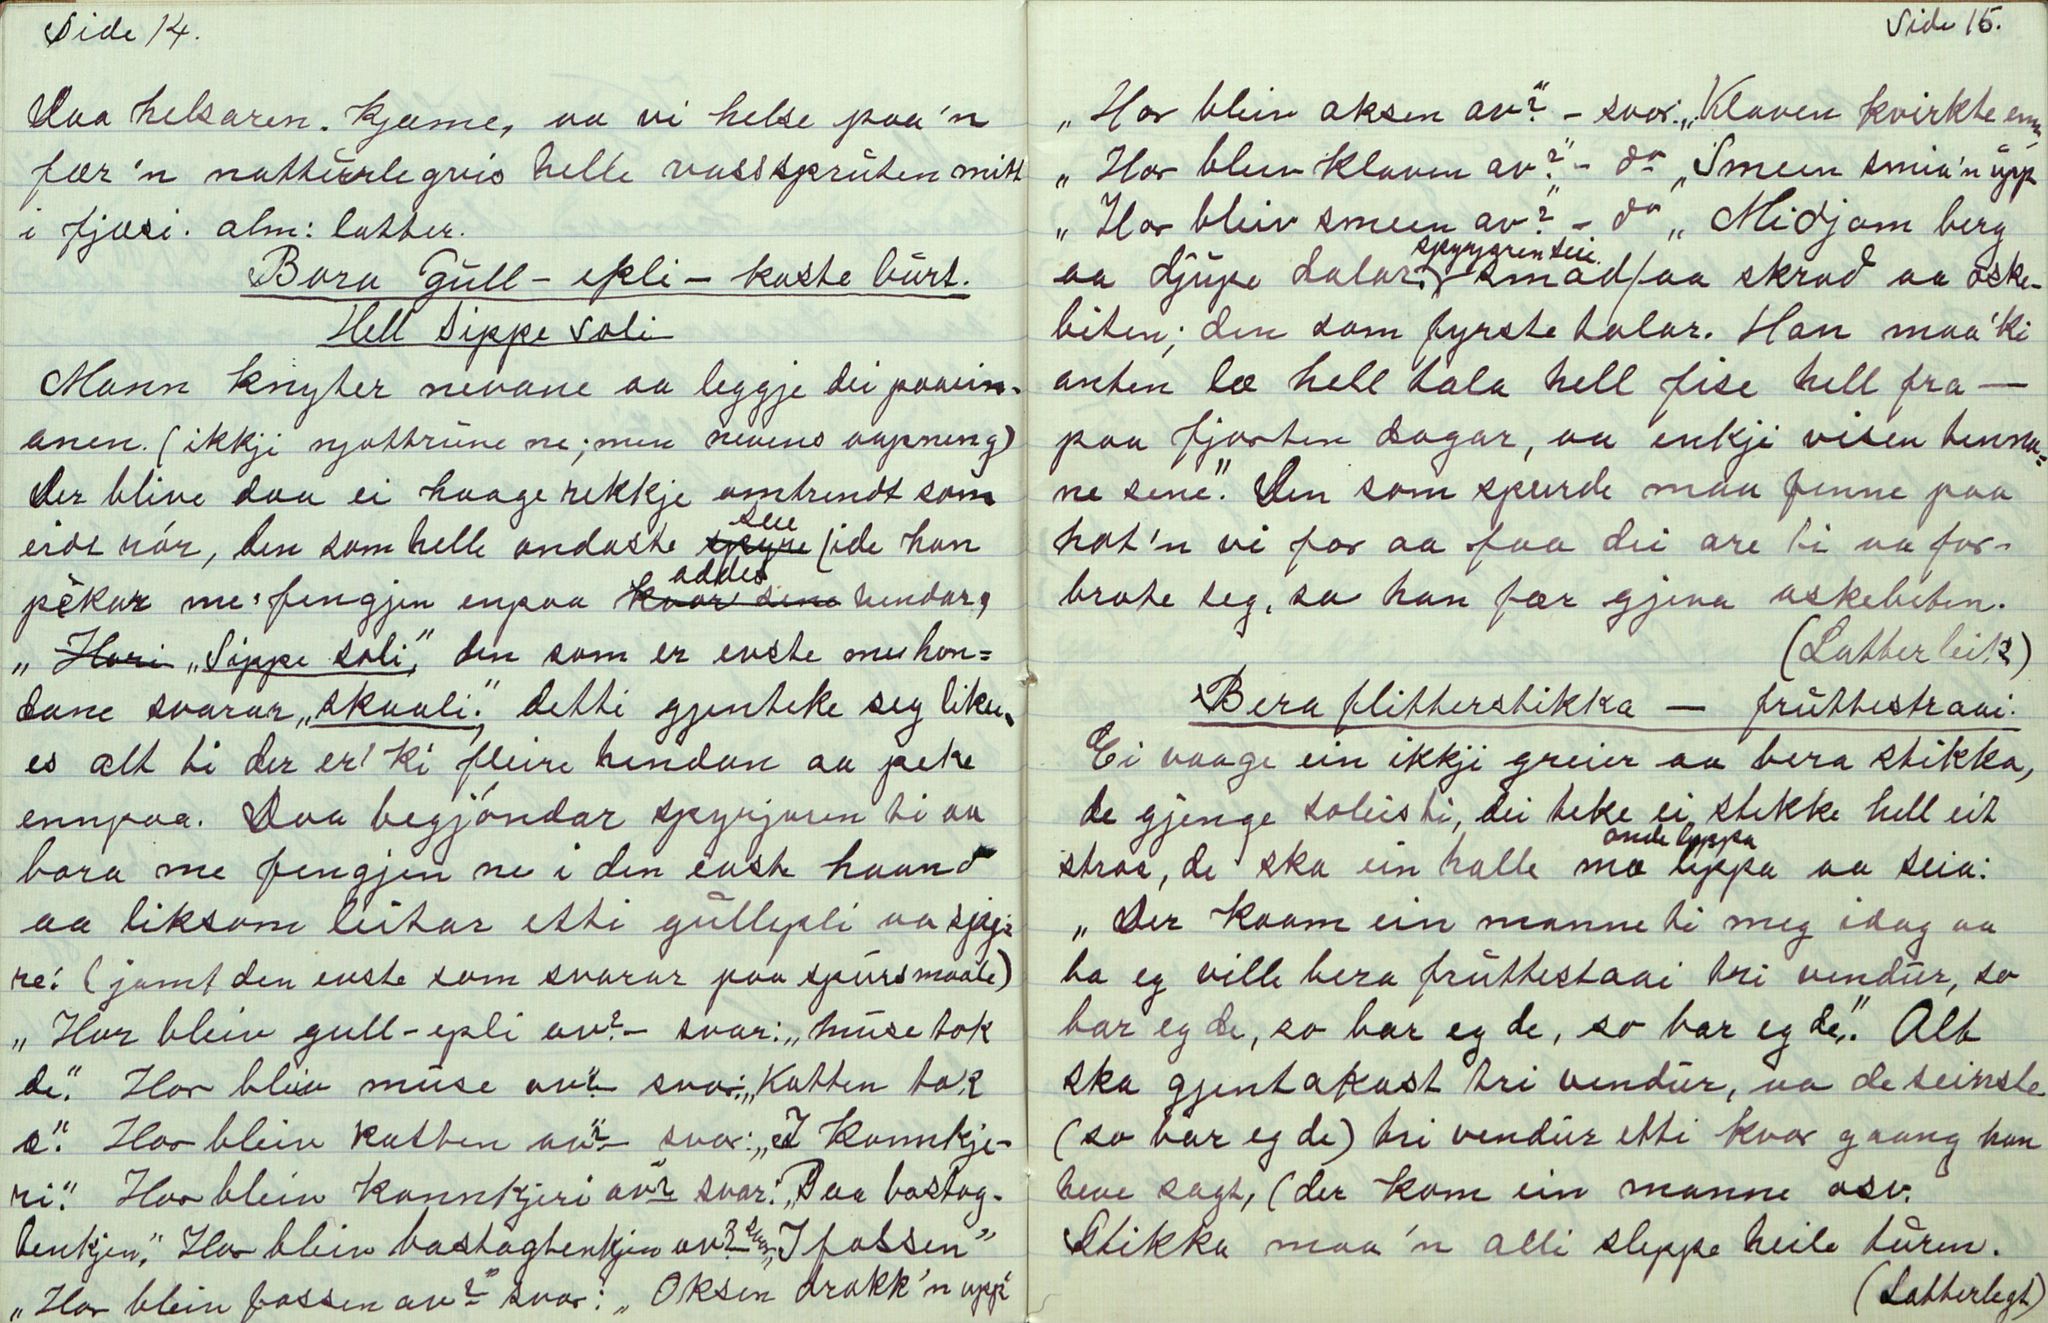 Side 14.
Daa helsaren. kjæme, aa vi helse paa'n
fær'n natturlegvis helle vasssprüten mitt
i fjæsi. alm: latter.
Bara Güll - epli - kaste bürt.
Hell Sippe Soli
Mann knyter nevane aa leggje dei paaein-
anen. (ikkji njottrüne ne; men nevens aapneng)
Der blive daa ei haage rekkje omtrendt som
eide rór, den som helle andaste spyre see (ide han
pekar me fengjen enpaa kvar sine addes hendar,
„Hori „Sippe soli," den som er evste me hon=
dane svarar „skaali." detti gjenteke seg like-
es alt ti der er'ki fleire hendan aa peke
ennpaa. Daa begjöndar spyrjaren ti aa
bora me fengjen ne i den evste haand
aa liksom leitar etti güllepli aa spy=
re: (jamt den evste som svarar paa spürsmaale)
„Hor bleiv gull-epli av? - svar: „müse tok
de". Hor bleiv müse av? - svar: „Katten tok
a". Hor bleiv katten av? - svar: „I Konnkje-
ri". Hor bleiv Konnkjeri av? svar: „Paa bastog-
benkjen". Hor bleiv bastogbenkjen av? svar „I fossen"
„Hor bleiv fossen av?" svar: „Oksen drakk'n upp"
Side 15.
„Hor bleiv oksen av?" - svar: „Klaven kvirkte enn,
„Hor bleiv Klaven av?" - do „Smeen smia'n üpp
„Hor bleiv smeen av?" - do „Midjom berg
aa djüpe dalar." spyrjaren seie. „Smad/aa skrad aa oske-
biten; den som fyrste talar. Han maa'ki
anten læ hell tala hell fise hell fra —
paa fjorten dagar, aa enkji visen tenna=
ne sene". Den som spurde maa fenne paa
hot'n vi for aa faa dei are ti aa for-
brote seg, sa han fær gjeva askebiten.
(Latterleik)
Bera flitterstikka — früttestraai.
Ei vaage ein ikkji greier aa bera stikka,
de gjenge soleis ti, dei teke ei stikke hell eit
straa, de ska ein halle mæ leppa onde leppa aa seia:
„Der kaam ein manne ti meg idag aa
ba eg ville bera früttestaai tri vendür, so
bar eg de, so bar eg de, so bar eg de". Alt
ska gjentakast tri vendür, aa de seinste
(so bar eg de) tri vendür etti kvor gaang han
heve sagt, (der kom ein manne osv.
Stikka maa'n alli sleppe heile türen.
(Latterlegt)